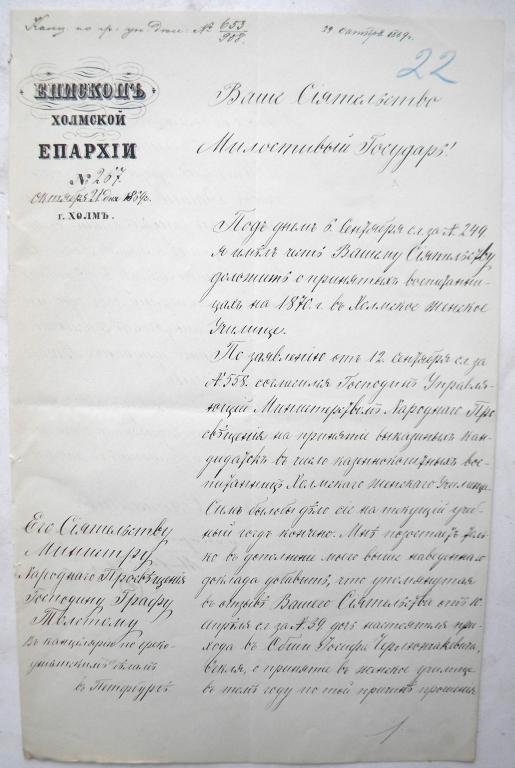 Канц. по гр. ун. дѣл. № 653/908.
29 октябр. 1869 г.
22
ЕПИСКОПЪ
ХОЛМСКОЙ
ЕПАРХІИ
№ 267.
Октября 21 дня 1869 г.
г. ХОЛМЪ.
Ваше Сіятельство
Милостивый Государь!
Подъ днемъ 6. Сентября с.г. за №. 249
я имѣлъ честь Вашему Сіятельству
доложить о принятыхъ воспитанни-
цахъ на 1870. г. въ Холмское Женское
Училище.
По заявленію отъ 12. сентября с.г. за
№ 558. согласился Господинъ Управля-
ющій Министерствомъ Народнаго Про-
свѣщенія на принятіе выказаныхъ кан-
дидатокъ въ число казеннокоштныхъ вос-
питанницъ Холмскаго Женскаго Училища.
Симъ былобы дѣло сіе на текущій учеб-
ный годъ кончено. Мнѣ позостаетъ толь-
ко въ дополненіе моего выше наведеннаго
доклада добавить, что упомянутая
въ отзывѣ Вашего Сіятельства отъ 10.
апрѣля с.г. за №. 39 дочь настоятеля при-
хода въ Іосифа
о принятіе въ женское училище
въ томъ году по той причинѣ прошенія
Его Сіятельству
Министру
Народнаго Просвѣщенія
Господину Графу
Толстому
Въ канцелярію по греко-
уніатскимъ дѣламъ
въ Петербургѣ